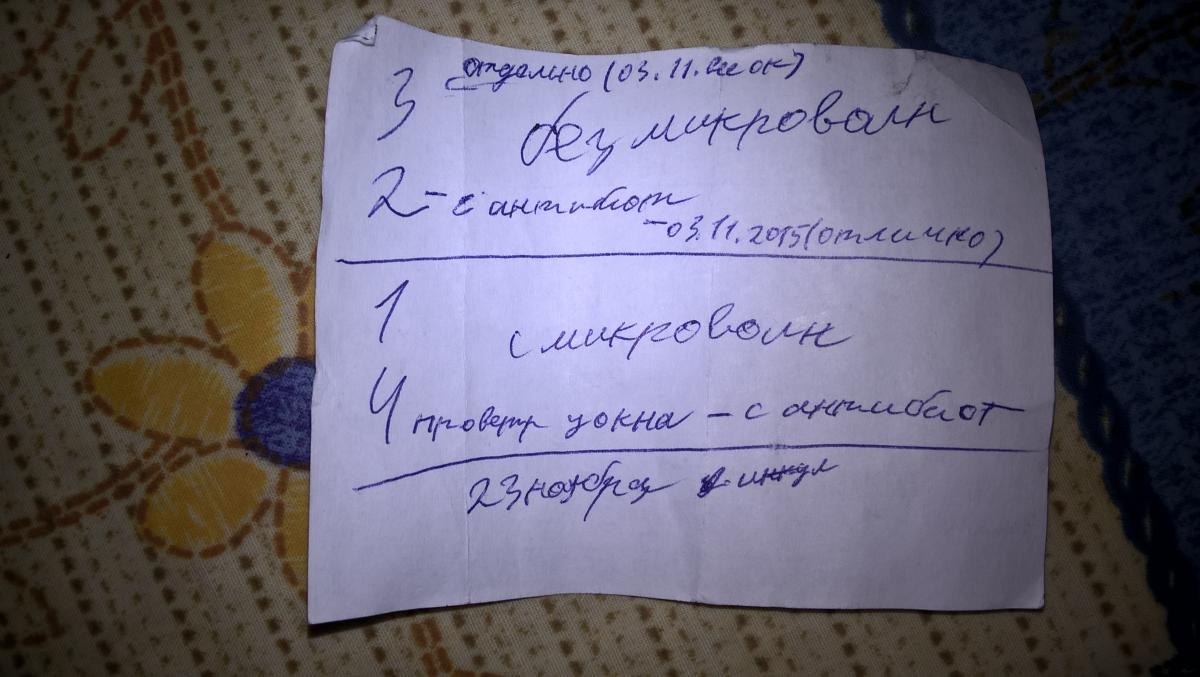 3 отдельно (03.11. не ок)
без микроволн
2 - с антибот
- 03.11.2015 (отлично)
1
с микроволн
4 проветр у окна - с антибиот
23 ноября инкул